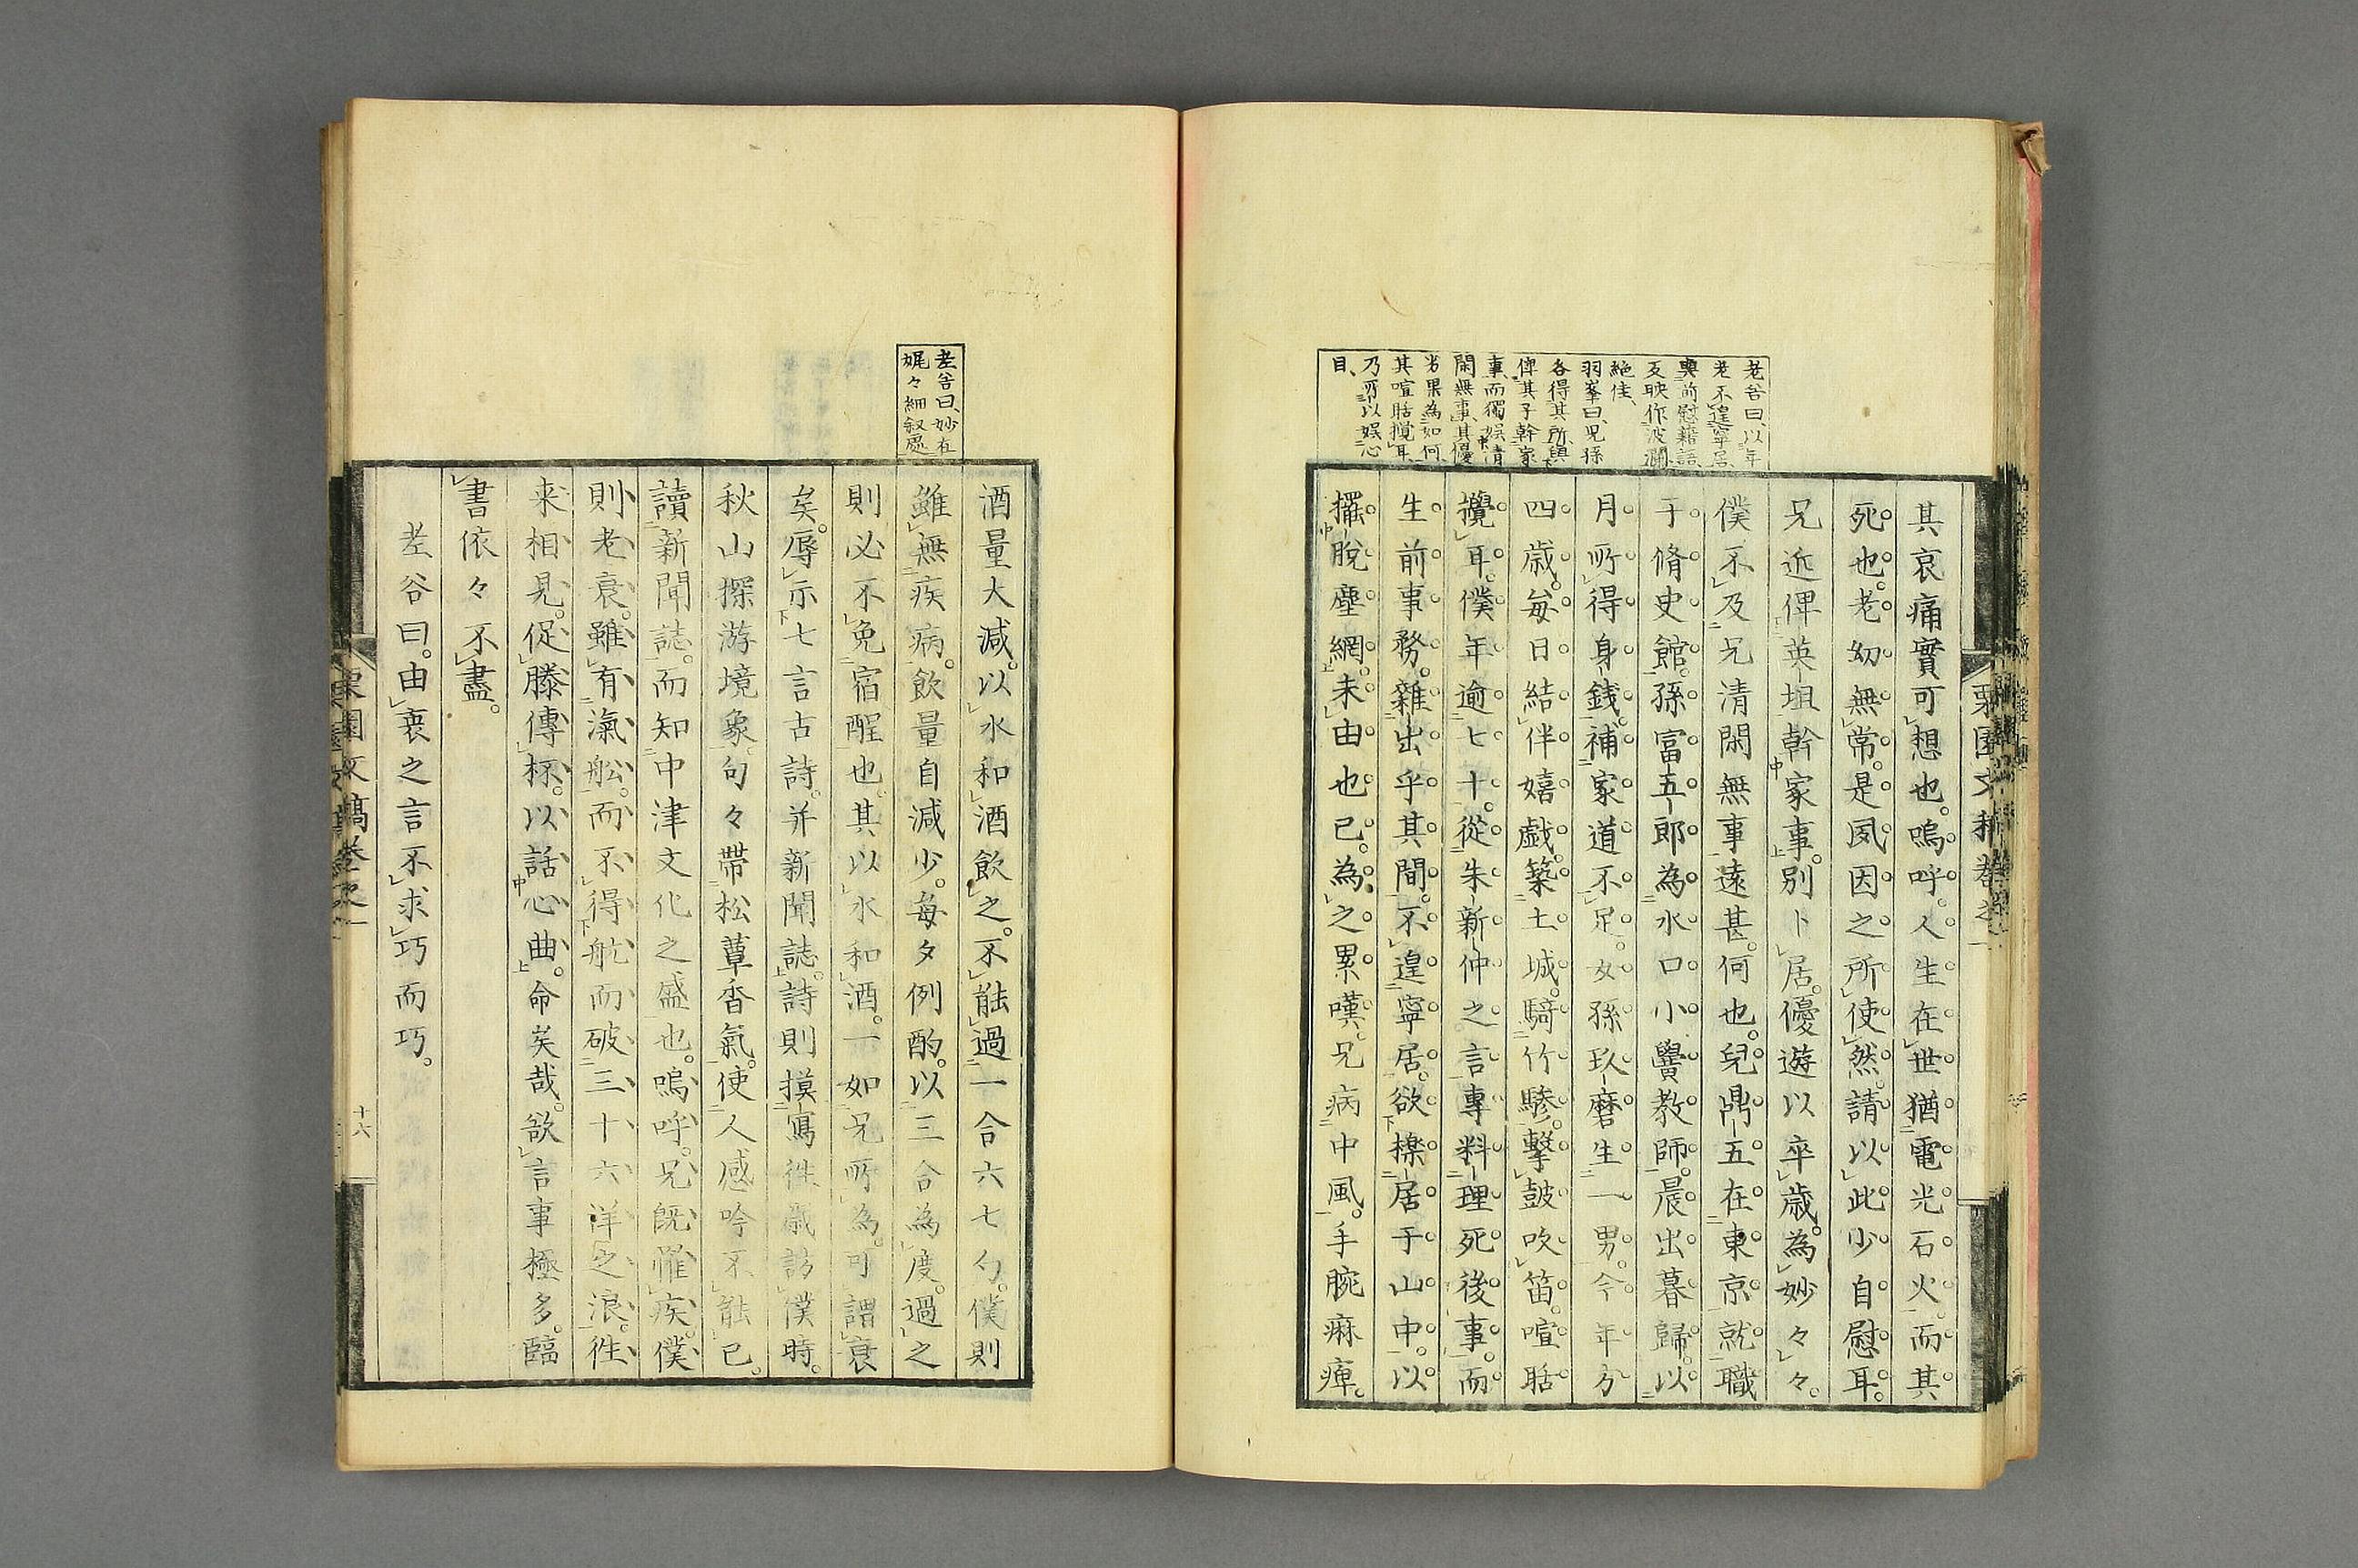 老谷曰、以年
老不遑寧居、
與前慰藉語、
反映作波瀾、
絶佳、
羽峯曰、児孫
各得其所、與
俾其子幹家
事、而獨娯清
閑無事、其優
劣果為如何、
其喧聒攪耳、
乃所以娯心
目、
其哀痛實可想也。嗚呼。人生在世猶電光石火。而其
死也。老幼無常。是夙因之所使然。請以此少自慰耳。
兄近俾英坦幹家事。別卜居。優遊以卒歳。為妙々々。
僕不及兄清閑無事遠甚。何也。兒鼎五在東京就職
于脩史館。孫富五郎為水口小黌教師。晨出暮歸。以
月所得身銭。補家道不足。女孫玖磨生一男。今年方
四歳。毎日結伴嬉戯。築土城。騎竹驂。撃皷吹笛。喧聒
攪耳。僕年逾七十。從朱新仲之言。專料理死後事。而
生前事務。雜出乎其間。不遑寧居。欲櫟居于山中。以
擺脫塵網。未由也已。為之累嘆。兄病中風。手腕麻痺。
栗園文稿巻之一
老谷曰、妙在
娓々細叙處
酒量大減。以水和酒飲之。不能過一合六七勺。僕則
雖無疾病。飲量自減少。毎夕例酌。以三合為度。過之
則必不免宿酲也。其以水和酒。一如兄所為。可謂衰
矣。辱示七言古詩。并新聞誌。詩則摸寫徃歳訪僕時。
秋山探游境象。句々帶松蕈香氣。使人感吟不能已。
讀新聞誌。而知中津文化之盛也。嗚呼。兄既罹疾。僕
則老衰。雖有氣舩。而不得航而破三十六洋之浪。徃
来相見。促膝傳杯。以話心曲。命矣哉。欲言事極多。臨
書依々不盡。
老谷曰。由衷之言不求巧而巧。
栗園文稿巻之一
十六